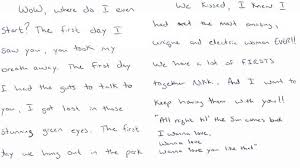 WOW, where do I even
Start? The first day I
saw you, you took my
breath away. The first day
I had the guts to talk to
you, I got lost in those
stunning green eyes. The first
day we hung out in the park
We kissed, I knew I
had met the most amazing,
unique and electric woman EVER!!
We have a lot of FIRSTS
together NAK. And I want to
Keep having them with you!!
"All right til' the Sun comes back
I wanna love,
Wanna love
Wanna love you like that"